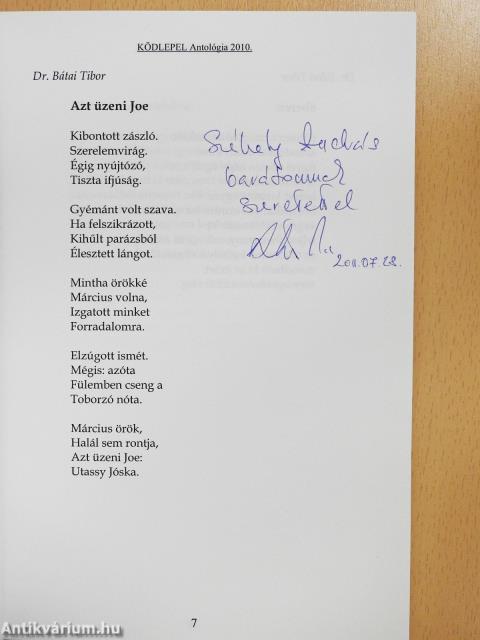 KÖDLEPEL Antológia 2010.
Dr. Bátai Tibor
Azt üzeni Joe
Kibontott zászló.
Szerelemvirág.
Égig nyújtózó,
Tiszta ifjúság.
Gyémánt volt szava.
Ha felszikrázott,
Kihűlt parázsból
Élesztett lángot.
Mintha örökké
Március volna,
Izgatott minket
Forradalomra.
Elzúgott ismét.
Mégis: azóta
Fülemben cseng a
Toborzó nóta.
Március örök,
Halál sem rontja,
Azt üzeni Joe:
Utassy Jóska.
András
barátomnak
szeretettel
2011.07.28.
7
Antikvárium.hu